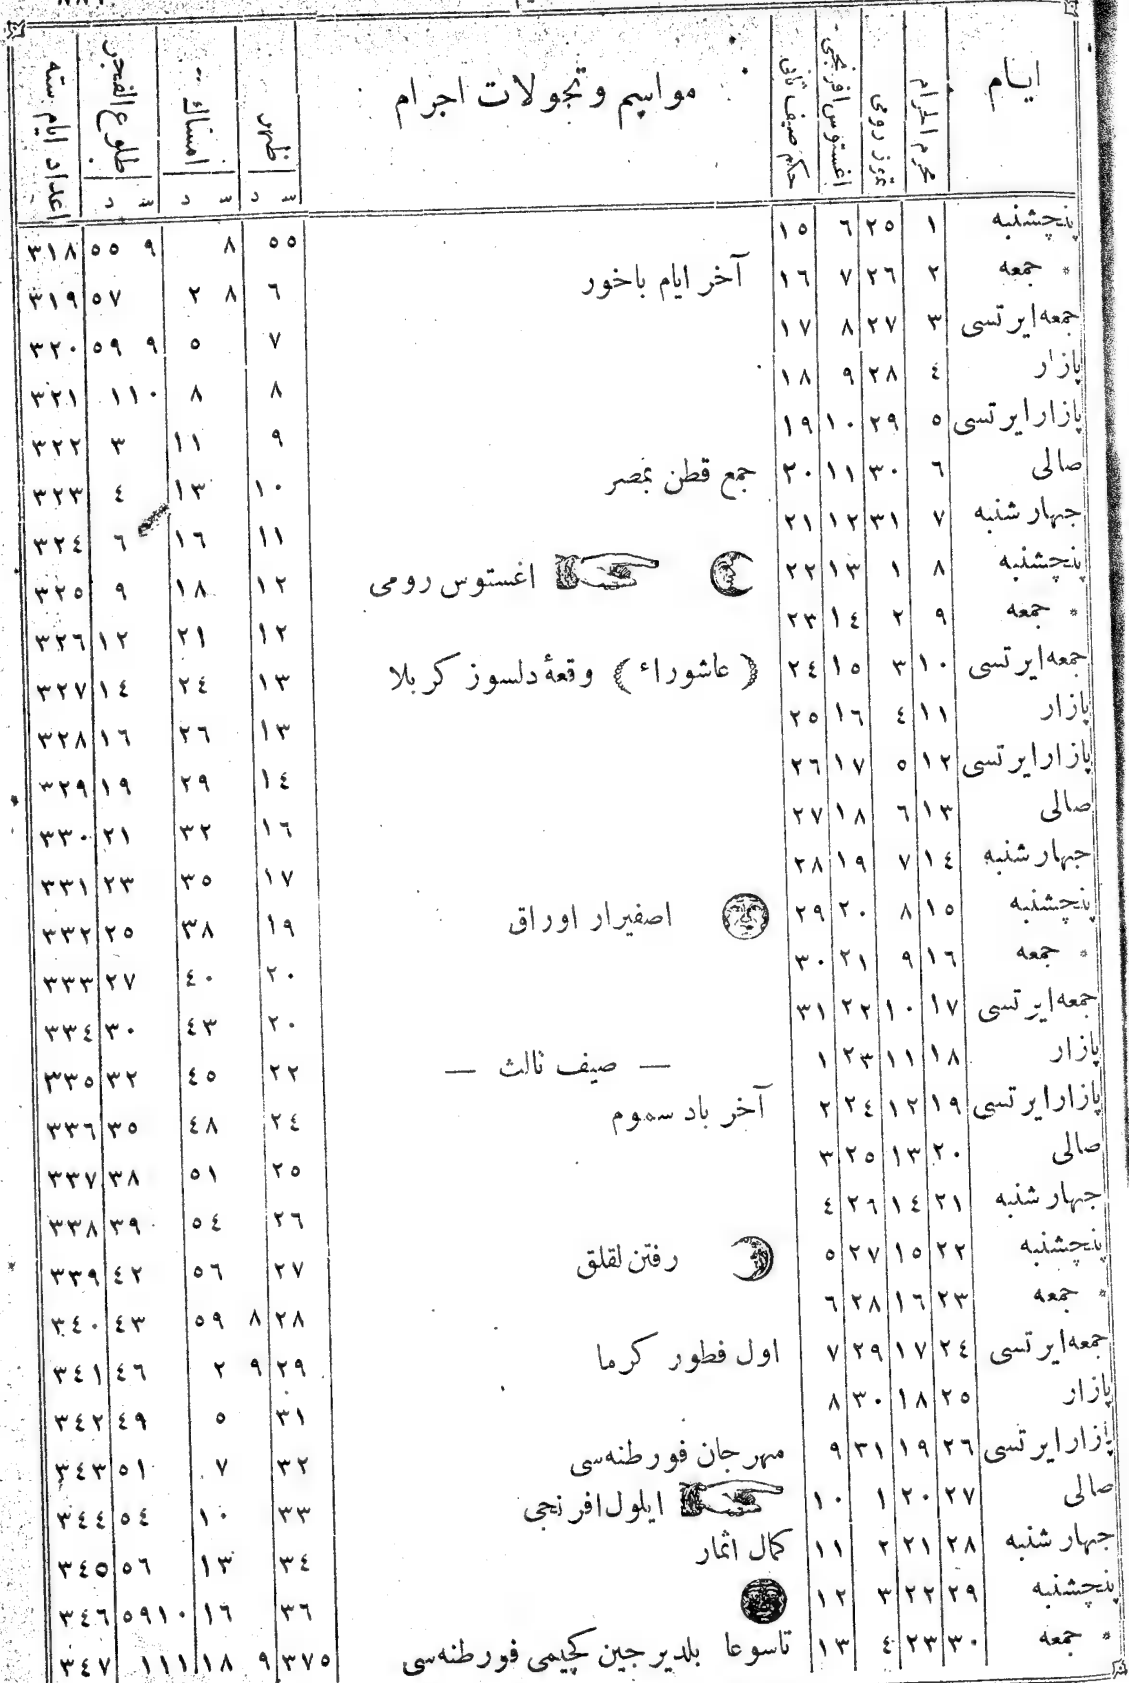 ايام محرم الحرام تموز رومى اغستوس افرنجى حكم صيف ثانى مواسم وتحولات اجرام ظهر امساك طلوع الفجر اعداد ايام سنه
س د س د س د
پنچشنبه ١ ٢٥ ٦ ١٥ ٥٥ ٨ ٩ ٥٥ ٣١٨
* جمعه ٢ ٢٦ ٧ ١٦ آخر ايام باخور ٦ ٨ ٢ ٥٧ ٣١٩
جمعه ايرتسى ٣ ٢٧ ٨ ١٧ ٧ ٥ ٩ ٥٩ ٣٢٠
پازار ٤ ٢٨ ٩ ١٨ ٨ ٨ ١٠ ١ ٣٢١
پازار ايرتسى ٥ ٢٩ ١٠ ١٩ ٩ ١١ ٣ ٣٢٢
صالى ٦ ٣٠ ١١ ٢٠ جمع قطن بمصر ١٠ ١٣ ٤ ٣٢٣
جهار شنبه ٧ ٣١ ١٢ ٢١ ١١ ١٦ ٦ ٣٢٤
پنچشنبه ٨ ١ ١٣ ٢٢ اغستوس رومى ١٢ ١٨ ٩ ٣٢٥
* جمعه ٩ ٢ ١٤ ٢٣ ١٢ ٢١ ١٢ ٣٢٦
جمعه ايرتسى ١٠ ٣ ١٥ ٢٤ (عاشوراء) وقعهٔ دلسوز كربلا ١٣ ٢٤ ١٤ ٣٢٧
پازار ١١ ٤ ١٦ ٢٥ ١٣ ٢٦ ١٦ ٣٢٨
پازار ايرتسى ١٢ ٥ ١٧ ٢٦ ١٤ ٢٩ ١٩ ٣٢٩
صالى ١٣ ٦ ١٨ ٢٧ ١٦ ٣٢ ٢١ ٣٣٠
جهار شنبه ١٤ ٧ ١٩ ٢٨ ١٧ ٣٥ ٢٣ ٣٣١
پنچشنبه ١٥ ٨ ٢٠ ٢٩ اصفيرار اوراق ١٩ ٣٨ ٢٥ ٣٣٢
* جمعه ١٦ ٩ ٢١ ٣٠ ٢٠ ٤٠ ٢٧ ٣٣٣
جمعه ايرتسى ١٧ ١٠ ٢٢ ٣١ ٢٠ ٤٣ ٣٠ ٣٣٤
پازار ١٨ ١١ ٢٣ ١ — صيف ثالث — ٢٢ ٤٥ ٣٢ ٣٣٥
پازار ايرتسى ١٩ ١٢ ٢٤ ٢ آخر باد سموم ٢٤ ٤٨ ٣٥ ٣٣٦
صالى ٢٠ ١٣ ٢٥ ٣ ٢٥ ٥١ ٣٨ ٣٣٧
جهار شنبه ٢١ ١٤ ٢٦ ٤ ٢٦ ٥٤ ٣٩ ٣٣٨
پنچشنبه ٢٢ ١٥ ٢٧ ٥ رفتن لقلق ٢٧ ٥٦ ٤٢ ٣٣٩
* جمعه ٢٣ ١٦ ٢٨ ٦ ٢٨ ٨ ٥٩ ٤٣ ٣٤٠
جمعه ايرتسى ٢٤ ١٧ ٢٩ ٧ اول فطور كرما ٢٩ ٩ ٢ ٤٦ ٣٤١
پازار ٢٥ ١٨ ٣٠ ٨ ٣١ ٥ ٤٩ ٣٤٢
پازار ايرتسى ٢٦ ١٩ ٣١ ٩ مهرجان فورطنه‌سى ٣٢ ٧ ٥١ ٣٤٣
صالى ٢٧ ٢٠ ١ ١٠ ايلول افرنجى ٣٣ ١٠ ٥٤ ٣٤٤
جهار شنبه ٢٨ ٢١ ٢ ١١ كمال اثمار ٣٤ ١٣ ٥٦ ٣٤٥
پنچشنبه ٢٩ ٢٢ ٣ ١٢ ٣٦ ١٦ ١٠ ٥٩ ٣٤٦
* جمعه ٣٠ ٢٣ ٤ ١٣ تاسوعا بلديرجين كچيمى فورطنه‌سى ٣٧٥ ٩ ١٨ ١١ ١ ٣٤٧